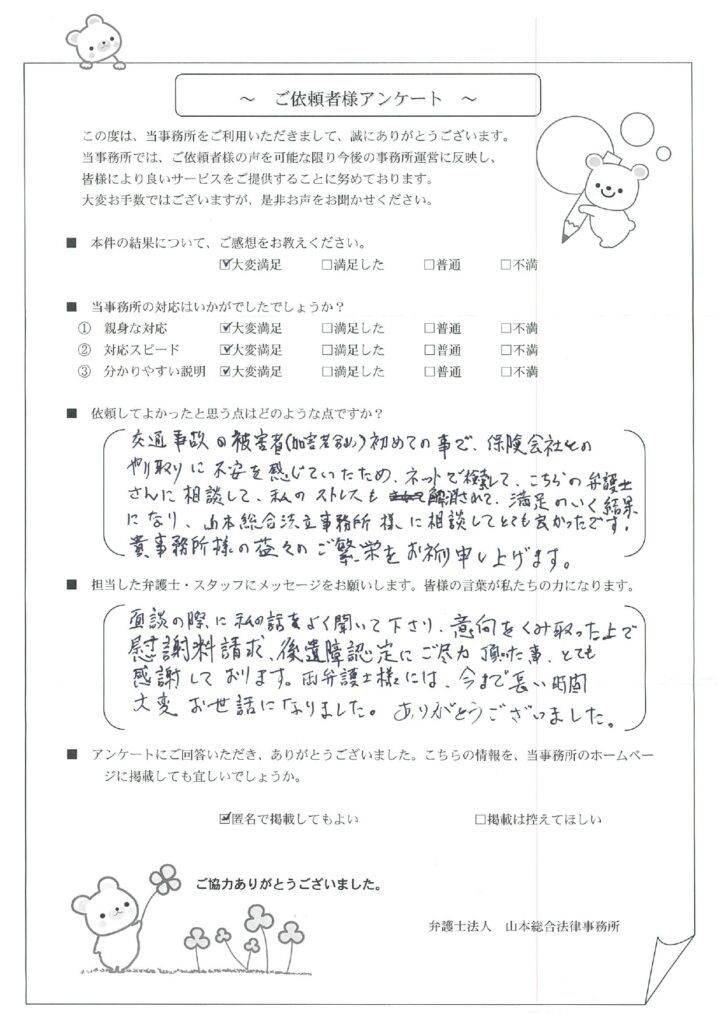 ～ ご依頼者様アンケート ～
この度は、当事務所をご利用いただきまして、誠にありがとうございます。
当事務所では、ご依頼者様の声を可能な限り今後の事務所運営に反映し、
皆様により良いサービスをご提供することに努めております。
大変お手数ではございますが、是非お声をお聞かせください。
■ 本件の結果について、ご感想をお教えください。
☑大変満足 □満足した □普通 □不満
■ 当事務所の対応はいかがでしたでしょうか？
① 親身な対応 ☑大変満足 □満足した □普通 □不満
② 対応スピード ☑大変満足 □満足した □普通 □不満
③ 分かりやすい説明 ☑大変満足 □満足した □普通 □不満
■ 依頼してよかったと思う点はどのような点ですか？
交通事故の被害者(加害者含め)初めての事で、保険会社との
やり取りに不安を感じていたため、ネットで検索して、こちらの弁護士
さんに相談して、私のストレスも解消されて、満足のいく結果
になり、山本総合法立事務所様に相談してとても良かったです！
貴事務所様の益々のご繁栄をお祈り申し上げます。
■ 担当した弁護士・スタッフにメッセージをお願いします。皆様の言葉が私たちの力になります。
面談の際に私の話をよく聞いて下さり、意向をくみ取った上で
慰謝料請求、後遺障認定にご尽力頂いた事、とても
感謝しております。両弁護士様には、今まで長い時間
大変お世話になりました。ありがとうございました。
■ アンケートにご回答いただき、ありがとうございました。こちらの情報を、当事務所のホームペー
ジに掲載しても宜しいでしょうか。
☑匿名で掲載してもよい □掲載は控えてほしい
ご協力ありがとうございました。
弁護士法人 山本総合法律事務所